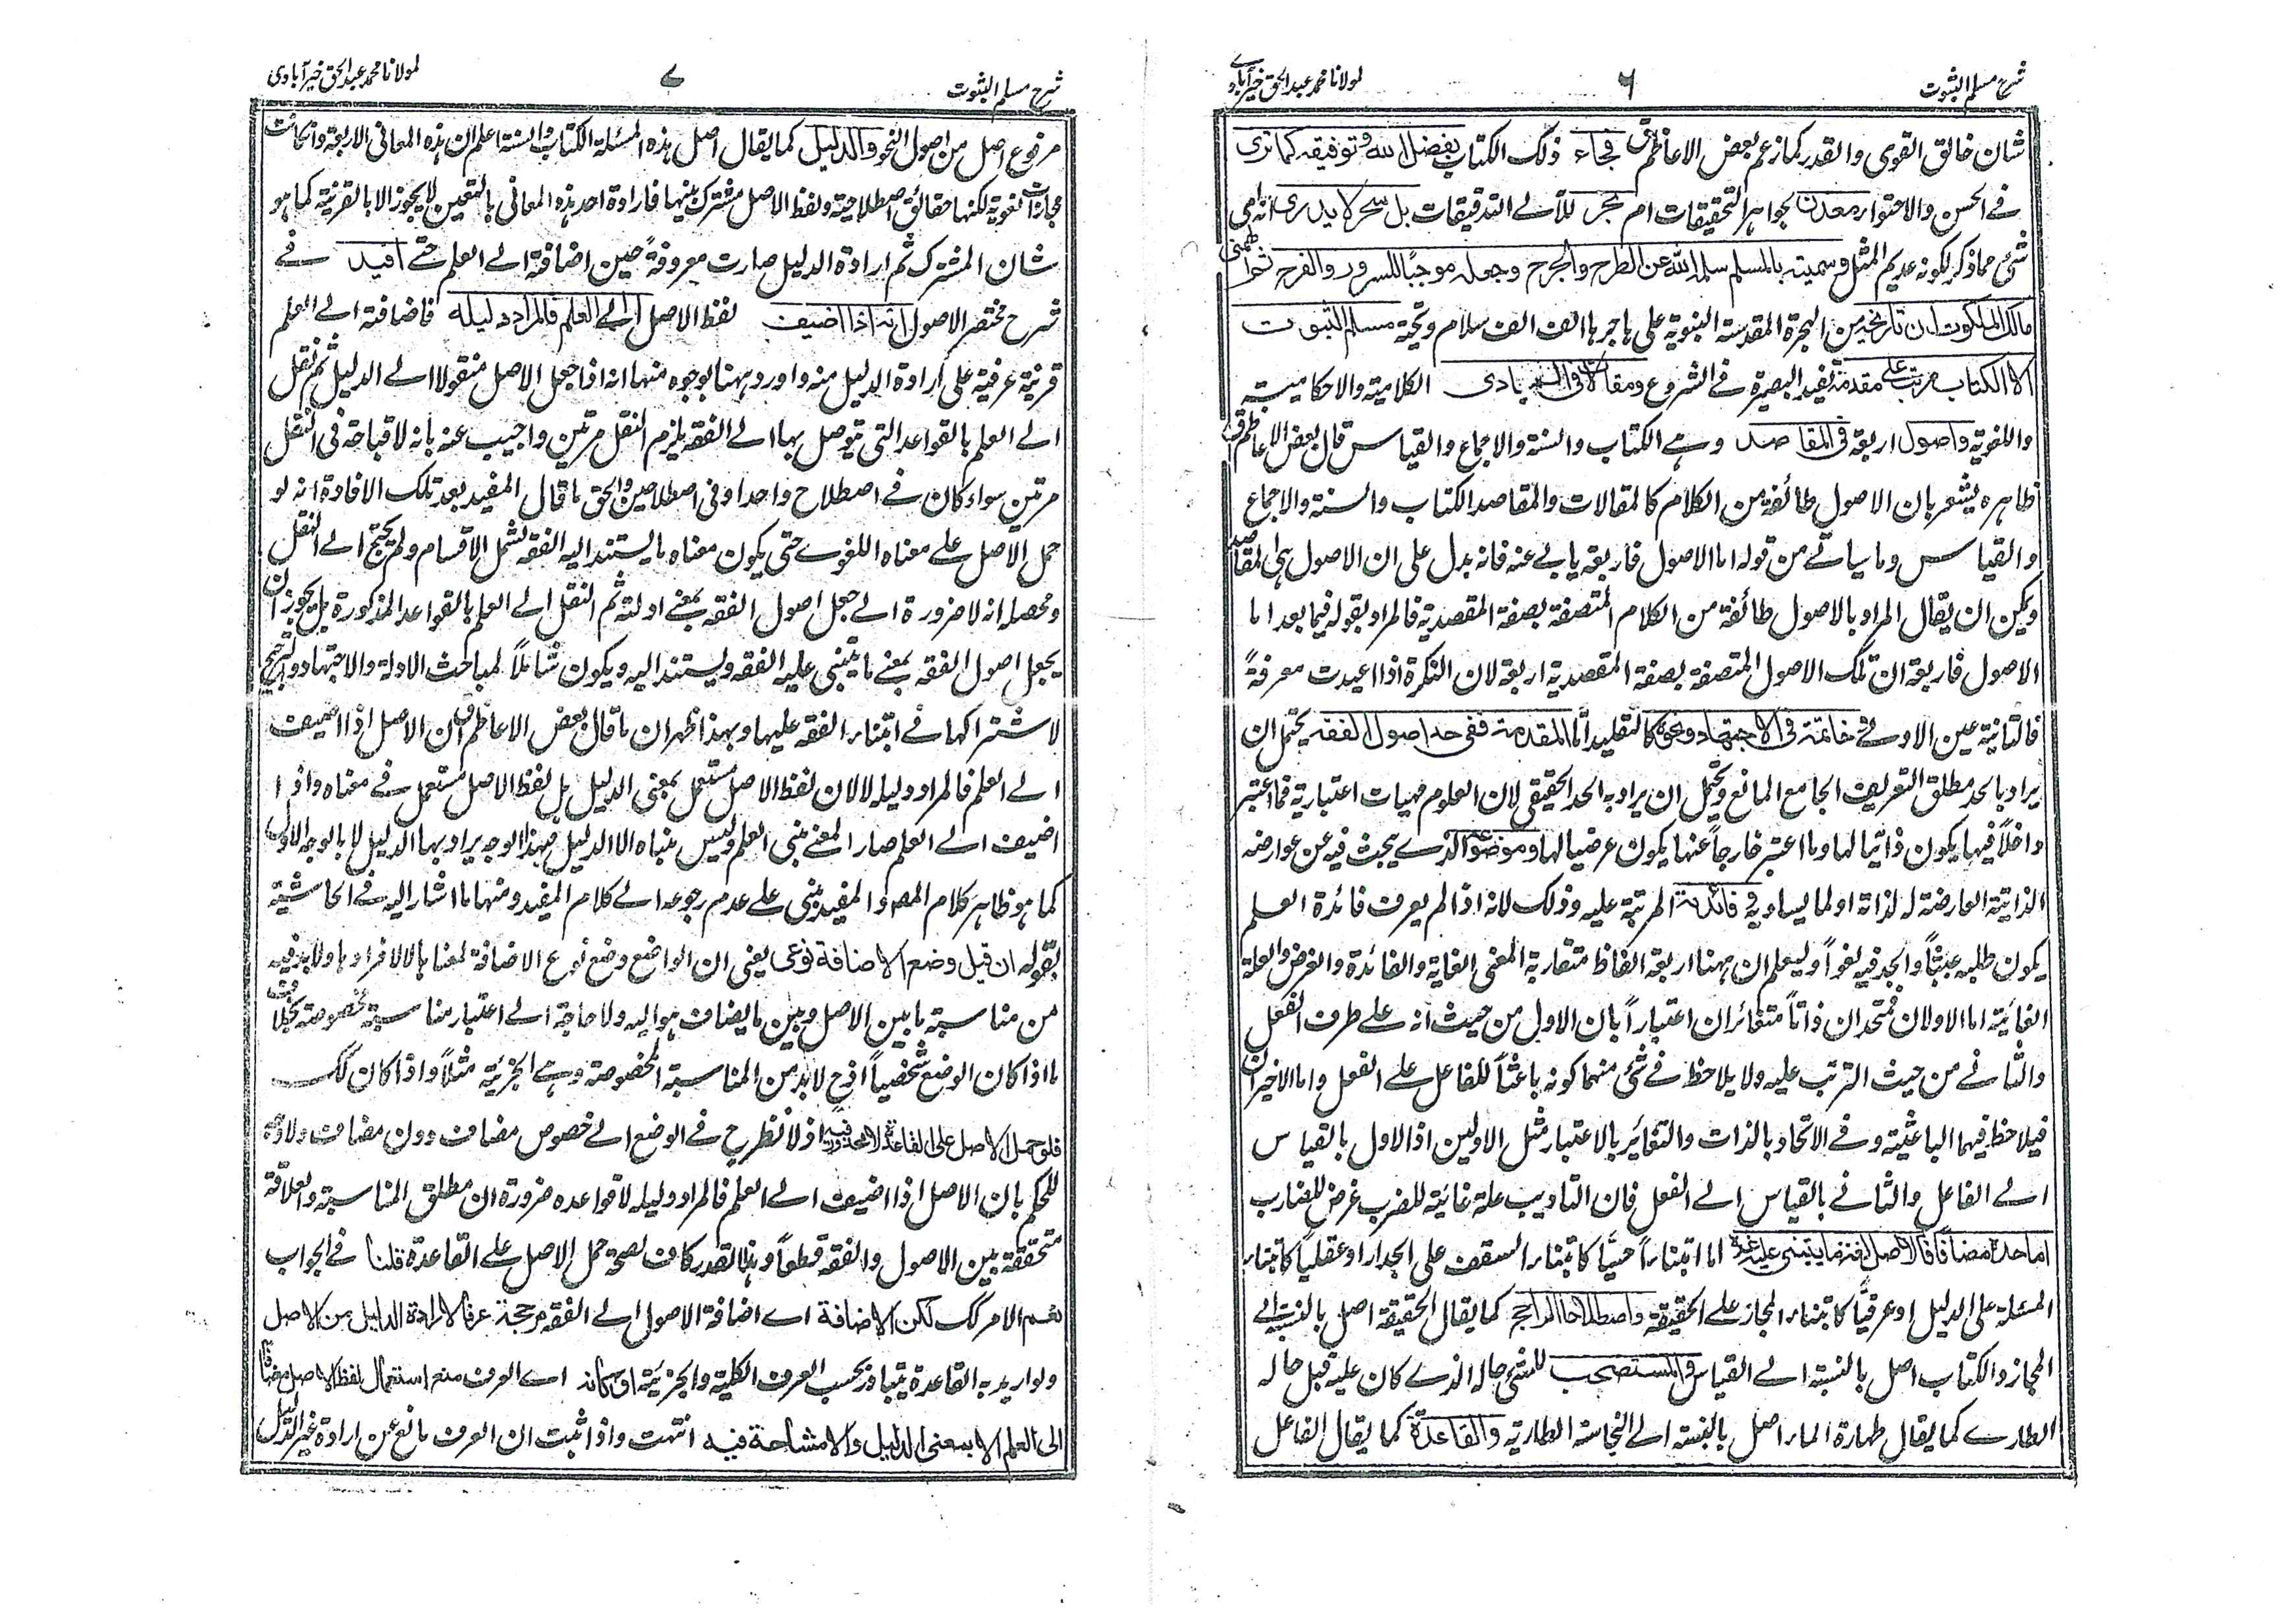 شرح مسلم الثبوت
٦
لمولانا محمد عبد الحق خیرآبادی
شان خالق القوی والقدر کما زعم بعض الاعاظم فجاء ذلک الکتاب بفضل الله وتوفیقه کما تری
فے الحسن والاحتواء معدن لجواهر التحقیقات ام بحر للآلے التدقیقات بل سحر لا یدری انه ای
شئ مما ذکر لکونه عدیم المثل وسمیته بالمسلم سلمه الله عن الطرح والجرح وجعله موجبا للسرور والفرح ثم الهمنی
مالک الملکوت ان تاریخه من الهجرة المقدسة النبویة علی هاجرها الف الف سلام وتحیة مسلم الثبوت
الا الکتاب مرتب علی مقدمة تفید البصیرة فے الشروع ومقالات فی المبادی الکلامیة والاحکامیة
واللغویة واصول اربعة فی المقاصد وهے الکتاب والسنة والاجماع والقیاس قال بعض الاعاظم
ظاهره یشعر بان الاصول طائفة من الکلام کالمقالات والمقاصد الکتاب والسنة والاجماع
والقیاس وما سیاتے من قوله اما الاصول فاربعة یابے عنه فانه یدل علی ان الاصول هی المقاصد
ویمکن ان یقال المراد بالاصول طائفة من الکلام المتصفة بصفة المقصدیة فالمراد بقوله فیما بعد اما
الاصول فاربعة ان تلک الاصول المتصفة بصفة المقصدیة اربعة لان النکرة اذا اعیدت معرفةً
فالثانیة عین الاولے وخاتمة فی الاجتهاد ونحوه کالتقلید اما المقدمة ففی حد اصول الفقه یحتمل ان
یراد بالحد مطلق التعریف الجامع المانع ویحتمل ان یراد به الحد الحقیقی لان العلوم مهیات اعتباریة فما اعتبر
داخلاً فیها یکون ذاتیا لها وما اعتبر خارجاً عنها یکون عرضیا لها وموضوعه الذے یبحث فیه عن عوارضه
الذاتیة العارضة له لذاته او لما یساویه وفائدته المرتبة علیه وذلک لانه اذا لم یعرف فائدة العلم
یکون طلبه عبثاً والجد فیه لغواً ولیعلم ان ههنا اربعة الفاظ متقاربة المعنی الغایة والفائدة والغرض والعلة
الغائیة اما الاولان فمتحدان ذاتاً متغائران اعتباراً بان الاول من حیث انه علے طرف الفعل
والثانے من حیث الترتب علیه ولا یلاحظ فے شئ منهما کونه باعثاً للفاعل علے الفعل واما الاخیران
فیلاحظ فیهما الباعثیة وفے الاتحاد بالذات والتغائر بالاعتبار مثل الاولین اذ الاول بالقیاس
الے الفاعل والثانے بالقیاس الے الفعل فان التادیب علة غائیة للضرب غرض للضارب
اما حده مضافا فالاصل لغة ما یبتنی علیه غیره اما ابتناءاً حسّیاً کابتناء السقف علی الجدار او عقلیاً کابتناء
المسئلة علی الدلیل او عرفیاً کابتناء المجاز علے الحقیقة واصطلاحا الراجح کما یقال الحقیقة اصل بالنسبة الے
المجاز والکتاب اصل بالنسبة الے القیاس والمستصحب للشئ حاله الذے کان علیه قبل حاله
الطارے کما یقال طهارة الماء اصل بالنسبة الے النجاسة الطاریة والقاعدة کما یقال الفاعل
شرح مسلم الثبوت
٧
لمولانا محمد عبد الحق خیرآبادی
مرفوع اصل من اصول النحو والدلیل کما یقال اصل هذه المسئلة الکتاب والسنة اعلم ان هذه المعانی الاربعة وان کانت
مجازات لغویة لکنها حقائق اصطلاحیة ولفظ الاصل مشترک بینها فارادة احد هذه المعانی بالتعین لا یجوز الا بالقرینة کما هو
شان المشترک ثم ارادة الدلیل صارت معروفةً حین اضافته الے العلم حتے افید فے
شرح مختصر الاصول انه اذا اضیف لفظ الاصل الی العلم فالمراد دلیله فاضافته الے العلم
قرینة عرفیة علی ارادة الدلیل منه واورد ههنا بوجوه منها انه اذا جعل الاصل منقولا الے الدلیل ثم نقل
الے العلم بالقواعد التی یتوصل بها الے الفقه یلزم النقل مرتین واجیب عنه بانه لا قباحة فی النقل
مرتین سواء کان فے اصطلاح واحد او فی اصطلاحین والحق ما قال المفید بعد تلک الافادة انه لو
حمل الاصل علے معناه اللغوے حتی یکون معناه ما یستند الیه الفقه لشمل الاقسام ولم یحتج الے النقل
ومحصله انه لا ضرورة الے جعل اصول الفقه بمعنے ادلته ثم النقل الے العلم بالقواعد المذکورة بل یجوز ان
یجعل اصول الفقه بمعنے ما یبتنی علیه الفقه ویستند الیه ویکون شاملاً لمباحث الادلة والاجتهاد والترجیح
لاشتراکها فے ابتناء الفقه علیها وبهذا ظهر ان ما قال بعض الاعاظم ان الاصل اذا اضیف
الے العلم فالمراد دلیله لا لان لفظ الاصل مستعمل بمعنی الدلیل بل لفظ الاصل مستعمل فے معناه واذا
اضیف الے العلم صار المعنے مبنی العلم ولیس مبناه الا الدلیل فبهذا الوجه یراد بها الدلیل لا بالوجه الاول
کما هو ظاهر کلام المص والمفید مبنی علے عدم رجوعه الے کلام المفید ومنها ما اشار الیه فے الحاشیة
بقوله ان قیل وضع الاضافة نوعی یعنی ان الواضع وضع نوع الاضافة لمعنا بالا لافرادها ولا بد فیه
من مناسبة ما بین الاصل وبین ما یضاف هو الیه ولا حاجة الے اعتبار مناسبة مخصوصة بخلاف
ما اذا کان الوضع شخصیاً اذ ح لا بد من المناسبة المخصوصة وهے الجزئیة مثلاً واذا کان کک
فلو حمل الاصل علی القاعدة لا محذور فیه اذ لا نظر ح فے الوضع الے خصوص مضاف دون مضاف ولا وجه
للحکم بان الاصل اذا اضیف الے العلم فالمراد دلیله لا قواعده ضرورة ان مطلق المناسبة والعلاقة
متحققة بین الاصول والفقه قطعاً وهذا القدر کاف لصحة حمل الاصل علے القاعدة قلنا فے الجواب
نعم الامر کک لکن الاضافة اے اضافة الاصول الے الفقه مرجحة عرفا لارادة الدلیل من الاصل
ولو ارید به القاعدة یتبادر بحسب العرف الکلیة والجزئیة اے العرف منع استعمال لفظ الاصل مضافا
الی العلم الا بمعنی الدلیل ولا مشاحة فیه انتهت واذا ثبت ان العرف مانع عن ارادة غیر الدلیل